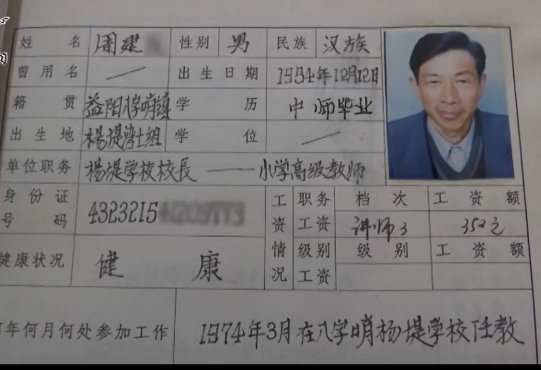 姓 名 周建 性别 男 民族 汉族
曾用名 — 出生日期 1954年12月12日
籍 贯 益阳八字哨镇 学 历 中师毕业
出生地 杨堤村组 学 位 —
单位职务 杨堤学校校長 —— 小学高级教师
身份证号码 4323215
工资情况 职务工资 档 次 讲师3 工 资 额 352元
级别工资 级 别 工 资 额
健康状况 健 康
何年何月何处参加工作 1974年3月在八字哨杨堤学校任教